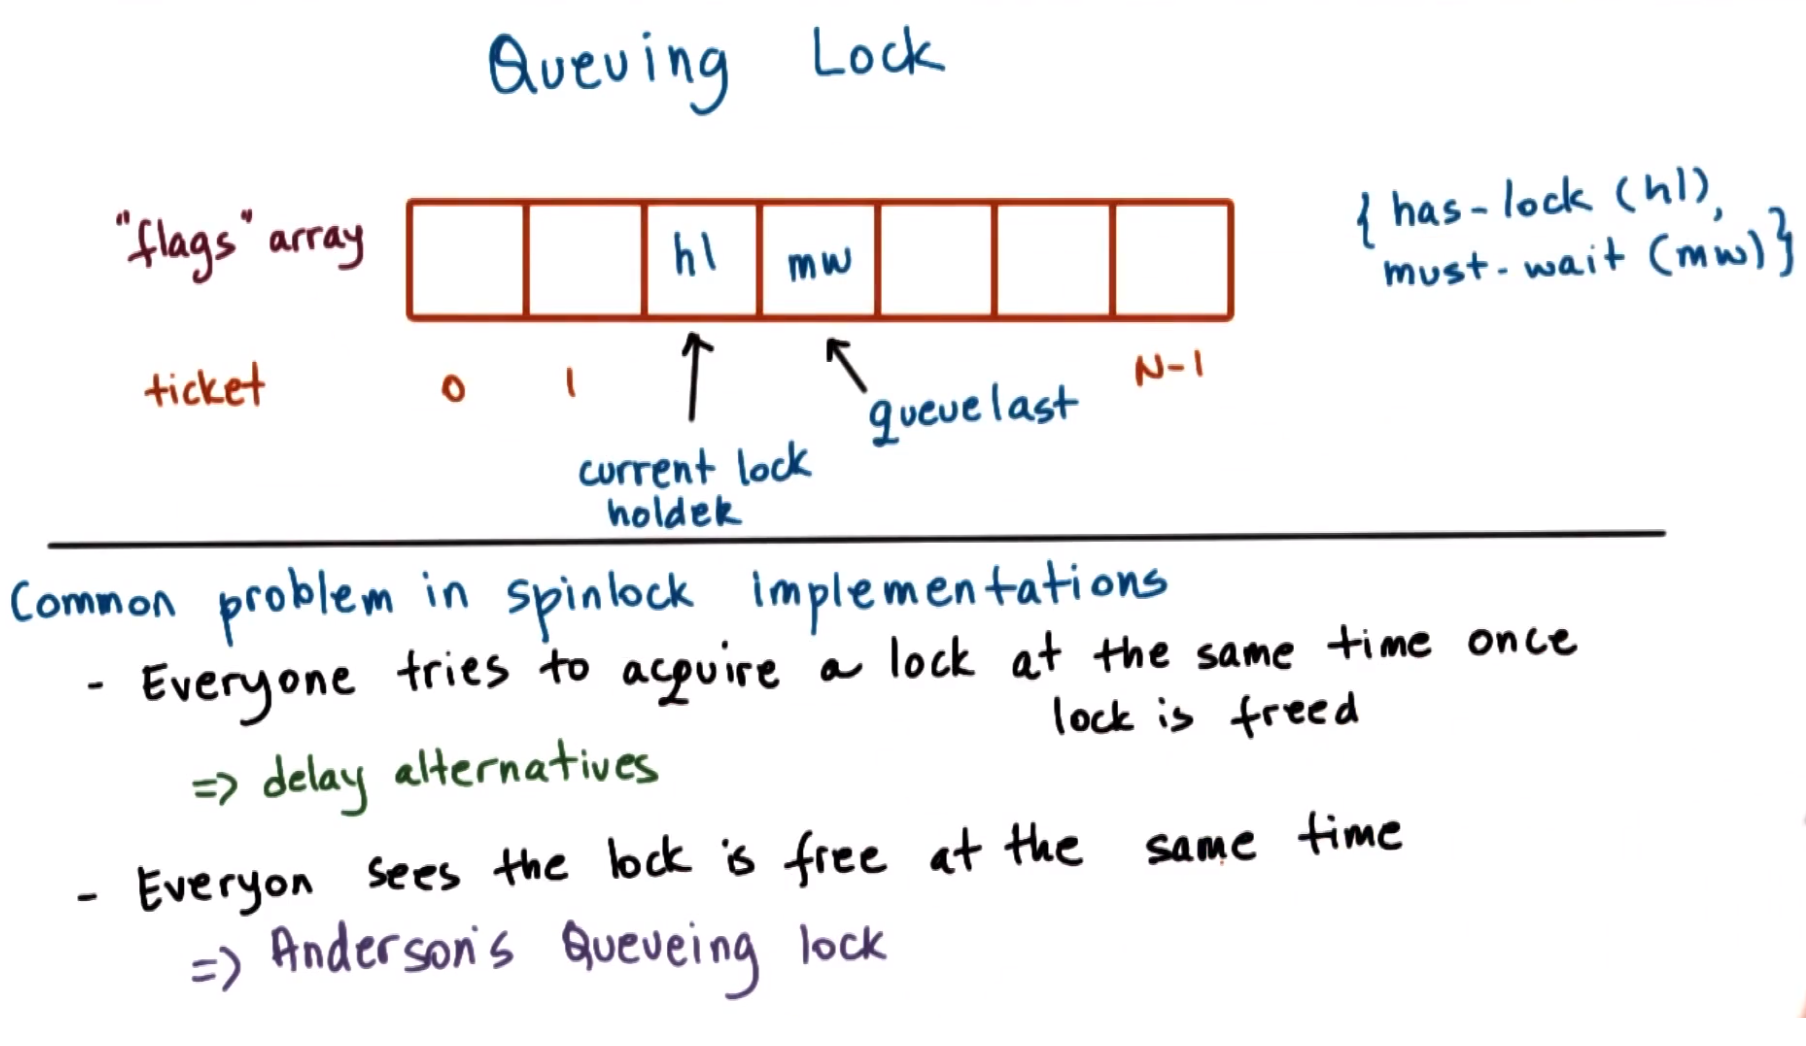 Queuing Lock
"flags" array
hl
mw
{ has-lock (hl),
must-wait (mw) }
ticket
0
1
N-1
queuelast
current lock
holder
Common problem in spinlock implementations
- Everyone tries to acquire a lock at the same time once
lock is freed
=> delay alternatives
- Everyon sees the lock is free at the same time
=> Anderson's Queueing lock